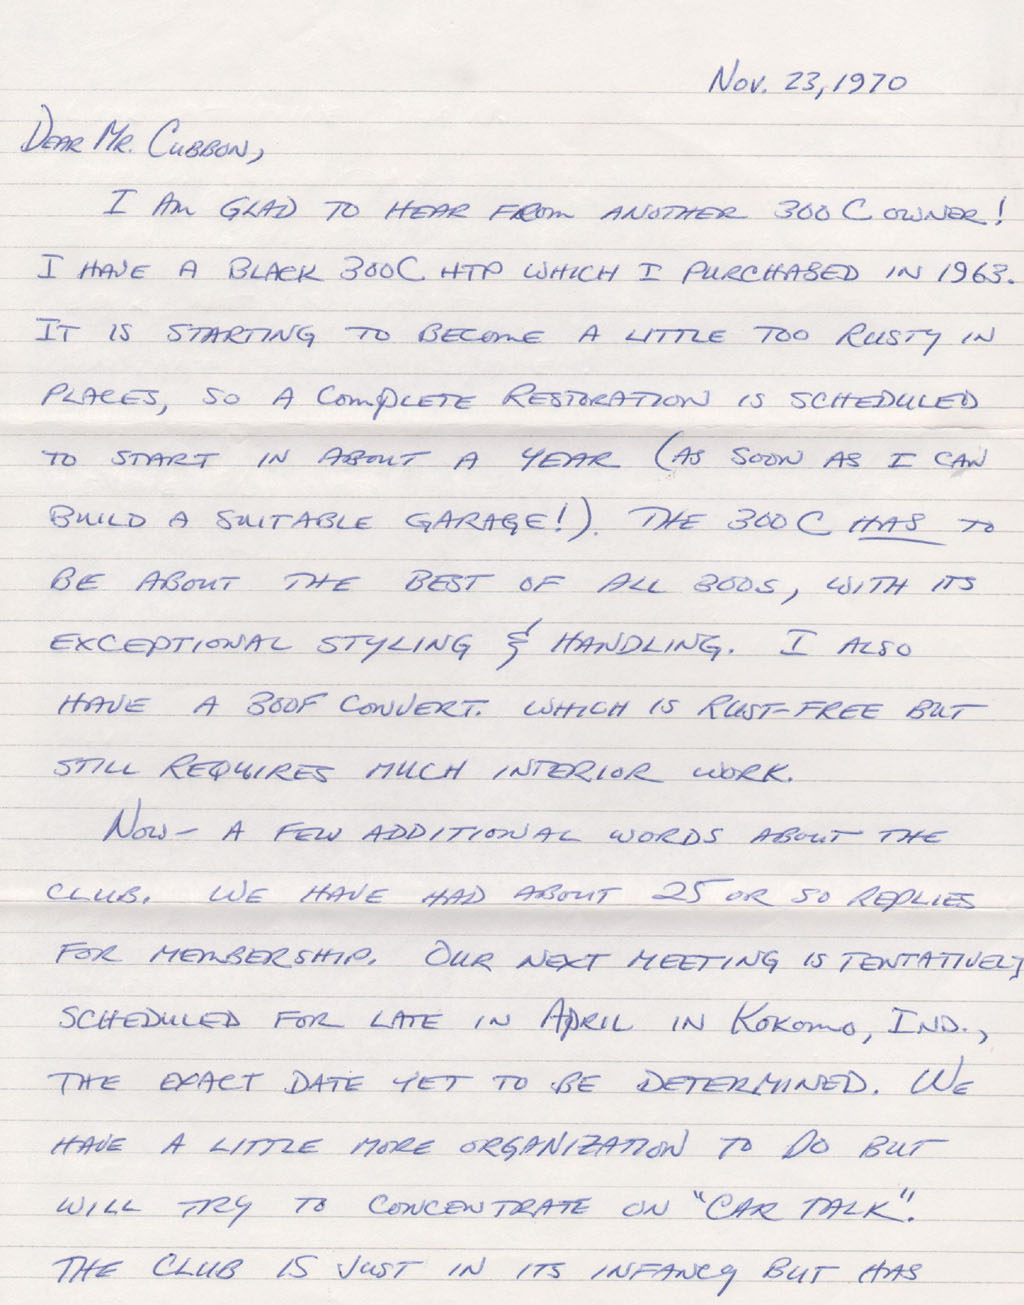 Nov. 23, 1970
Dear Mr. Cubbon,
I am glad to hear from another 300C owner!
I have a black 300C HTP which I purchased in 1963.
It is starting to become a little too rusty in
places, so a complete restoration is scheduled
to start in about a year (as soon as I can
build a suitable garage!). The 300C has to
be about the best of all 300s, with its
exceptional styling & handling. I also
have a 300F convert. which is rust-free but
still requires much interior work.
Now - a few additional words about the
club. We have had about 25 or so replies
for membership. Our next meeting is tentatively
scheduled for late in April in Kokomo, Ind.,
the exact date yet to be determined. We
have a little more organization to do but
will try to concentrate on "car talk".
The club is just in its infancy but has